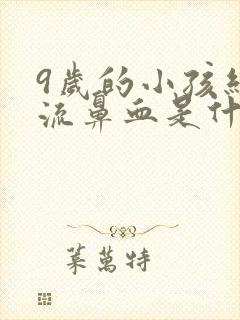 9歲的小孩經
流鼻血是什
葉萬特